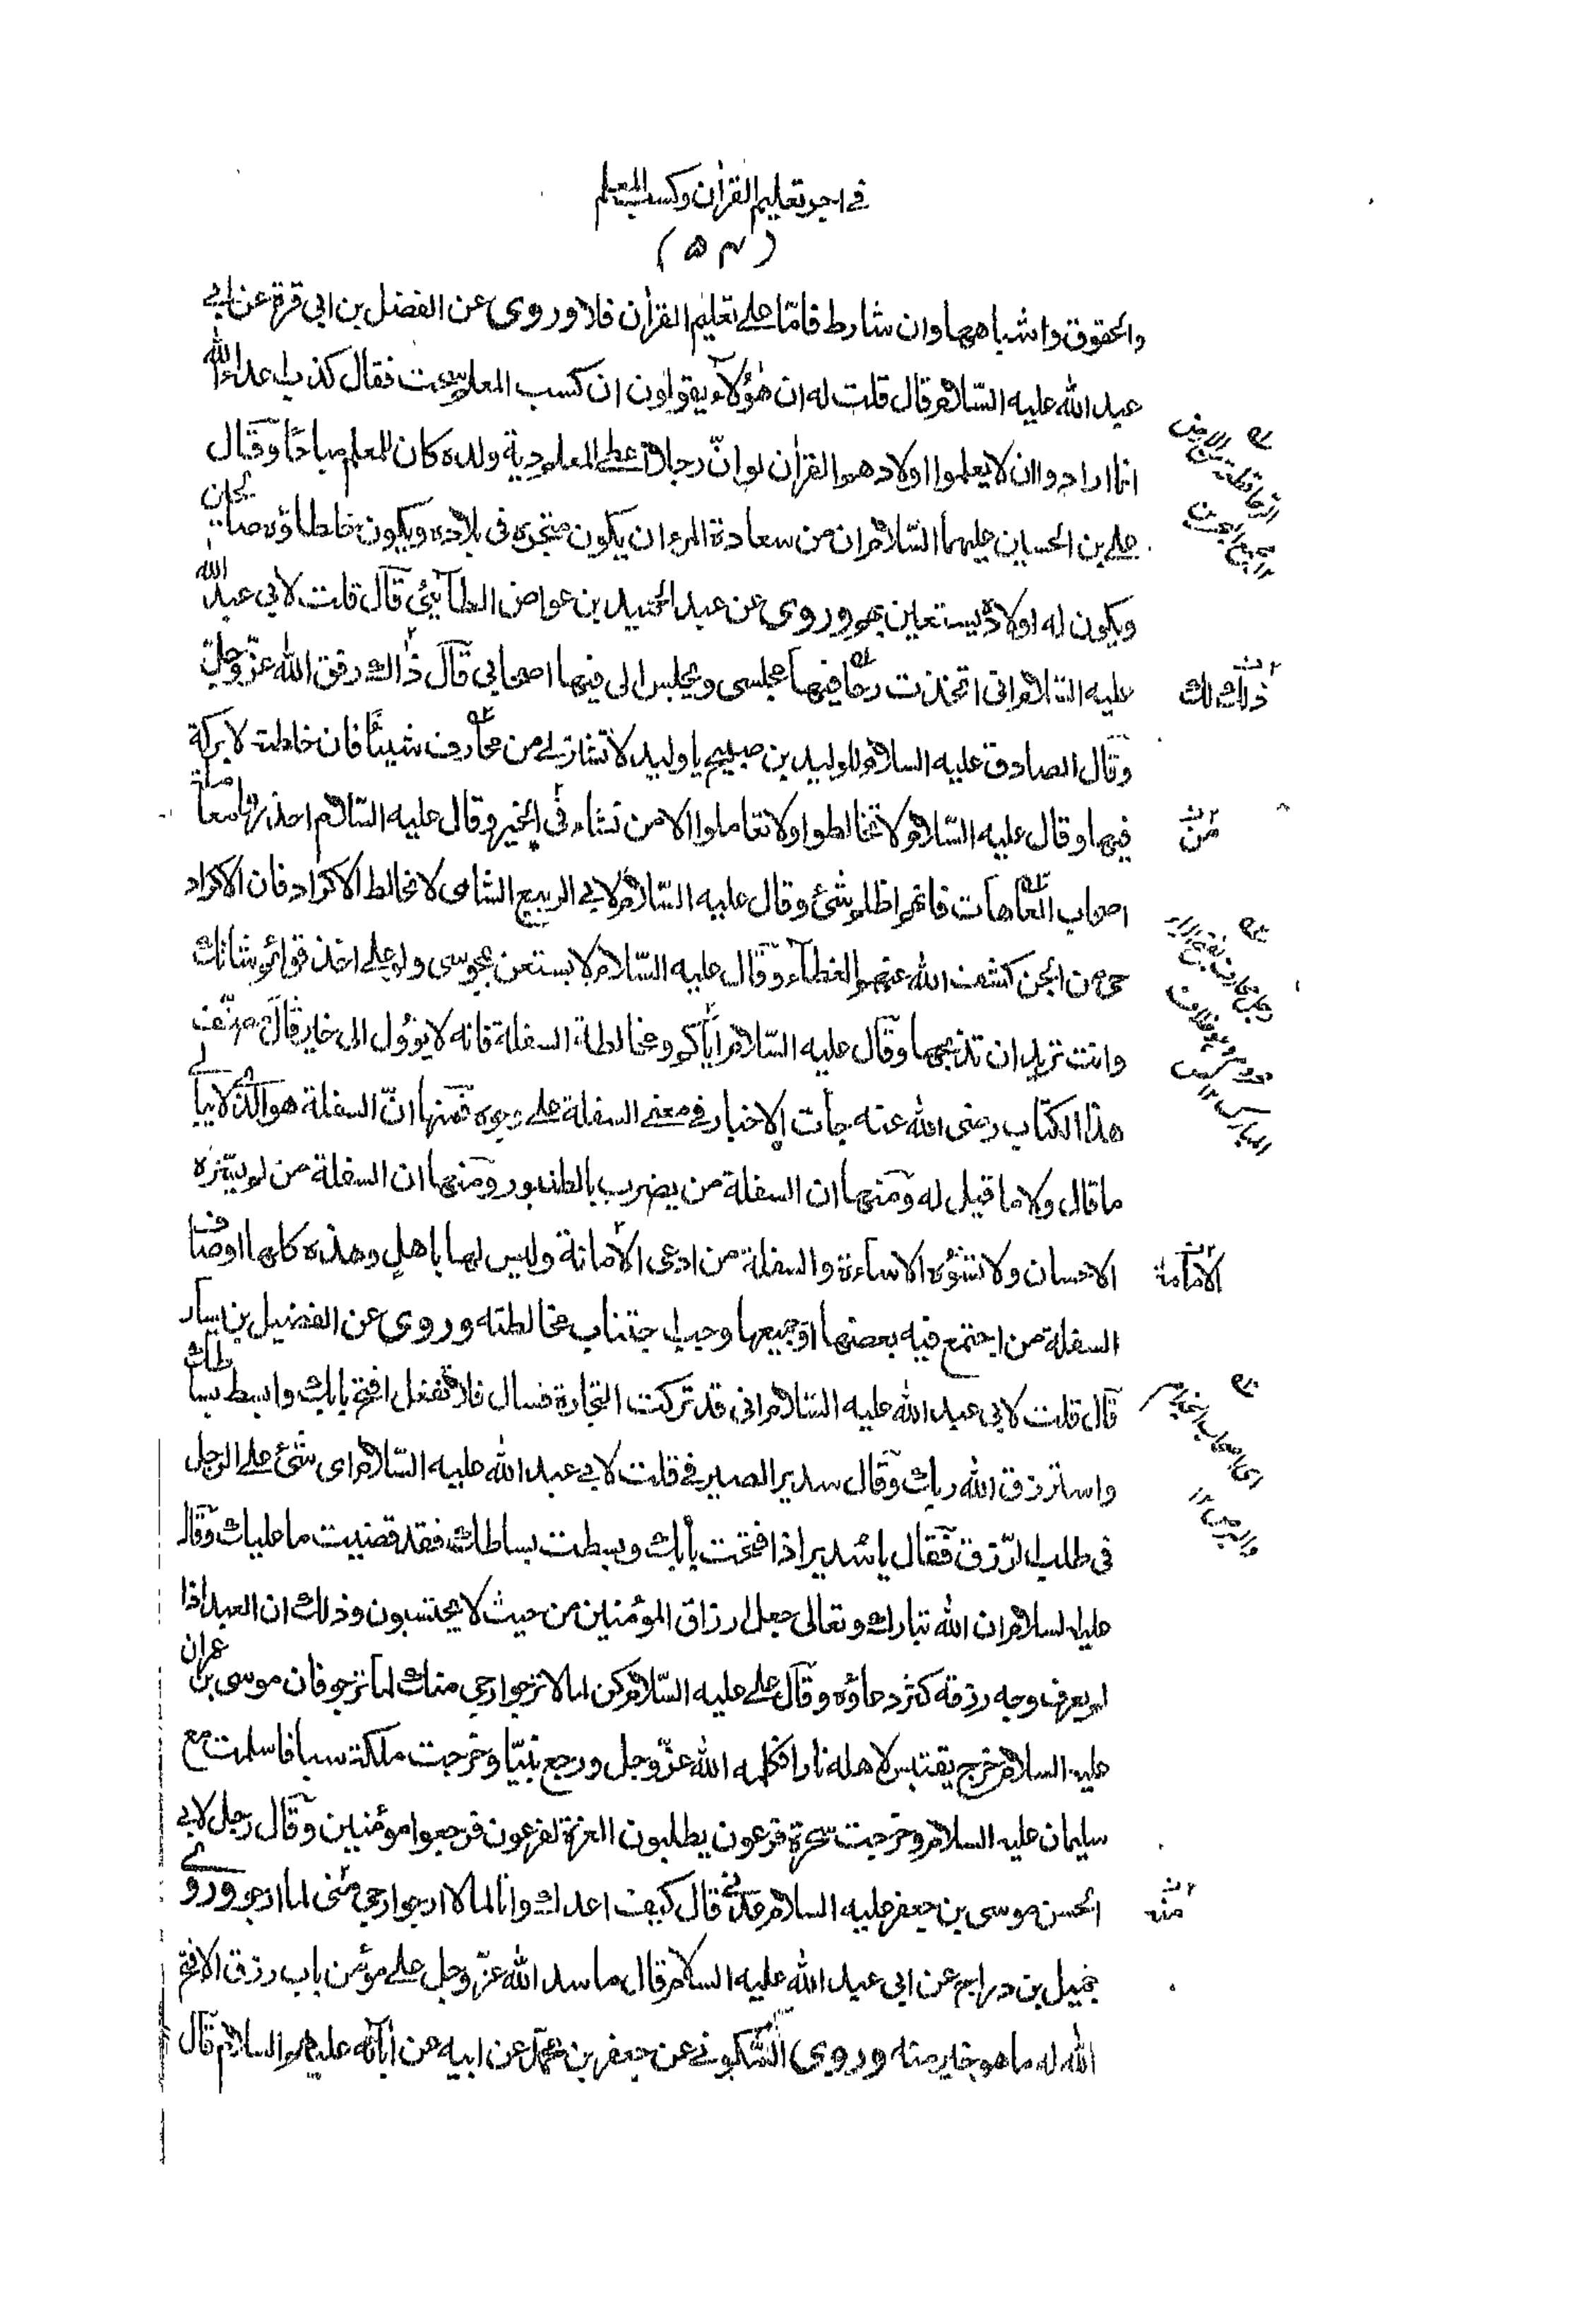 في اجر تعليم القرآن وكسب المعلم
(٥٣)
والحقوق واشباهها وان شارط فامّا على تعليم القرآن فلا وروى عن الفضل بن ابي قرة عن ابي
عبد الله عليه السّلام قال قلت له ان هٰؤلاء يقولون ان كسب المعلم سحت فقال كذب اعداء الله
انما ارادوا ان لا يعلموا اولادهم القرآن لو انّ رجلا اعطى المعلم دية ولده كان للمعلم مباحًا وقال
على بن الحسين عليهما السّلام ان من سعادة المرء ان يكون متجره فى بلاده ويكون خلطاؤه صالحين
ويكون له اولاد يستعين بهم وروى عن عبد الحميد بن عواض الطائي قال قلت لابي عبد الله
عليه السّلام انى اتخذت رحًا فيها مجلسى ويجلس الى فيها اصحابي قال ذاك رفق الله عزّ وجلّ
وقال الصادق عليه السلام للوليد بن صبيح يا وليد لا تشتر لى من محارف شيئًا فان خلطته لا بركة
فيها وقال عليه السّلام لا تخالطوا ولا تعاملوا الا من نشاء فى الخير وقال عليه السّلام احذر معاملة
اصحاب العاهات فانهم اظلم شئ وقال عليه السّلام لابي الربيع الشامى لا تخالط الاكراد فان الاكراد
حى من الجن كشف الله عنهم الغطاء وقال عليه السّلام لا يستعن بمجوسى ولو على اخذ قوائم شاتك
وانت تريد ان تذبحها وقال عليه السّلام اياكم ومخالطة السفلة فانه لا يؤول الى خير قال مصنّف
هذا الكتاب رضى الله عنه جاءت الاخبار في معنى السفلة على وجوه فمنها انّ السفلة هو الذى لا يبالى
ما قال ولا ما قيل له ومنها ان السفلة من يضرب بالطنبور ومنها ان السفلة من لم يسّره
الاحسان ولا تسؤه الاساءة والسفلة من ادعى الامانة وليس لها باهل وهذه كلها اوصاف
السفلة من اجتمع فيه بعضها او جميعها وجب اجتناب مخالطته وروى عن الفضيل بن يسار
قال قلت لابي عبد الله عليه السّلام انى قد تركت التجارة فسال فلا تفعل افتح بابك وابسط بساطك
واسترزق الله ربك وقال سدير الصيرفي قلت لابي عبد الله عليه السّلام اى شئ على الرجل
فى طلب الرّزق فقال يا سدير اذا فتحت بابك وبسطت بساطك فقد قضيت ما عليك وقال
عليه السلام ان الله تبارك وتعالى جعل ارزاق المؤمنين من حيث لا يحتسبون وذلك ان العبد اذا
لم يعرف وجه رزقه كثر دعاؤه وقال على عليه السّلام كن لما لا ترجو ارجى منك لما ترجو فان موسى بن عمران
عليه السلام خرج يقتبس لاهله نارا فكلمه الله عزّ وجل ورجع نبيّا وخرجت ملكة سبا فاسلمت مع
سليمان عليه السلام وخرجت سحرة فرعون يطلبون العزة لفرعون فرجعوا مؤمنين وقال رجل لابي
الحسن موسى بن جعفر عليه السلام عدنى قال كيف اعدك وانا لما لا ارجو ارجى منى لما ارجو وروى
جميل بن دراج عن ابى عبد الله عليه السلام قال ما سد الله عزّ وجل على مؤمن باب رزق الا فتح
الله له ما هو خير منه وروى السكونى عن جعفر بن محمّد عن ابيه عن آبائه عليهم السلام قال
ذلك لك
من
الامامة
منه